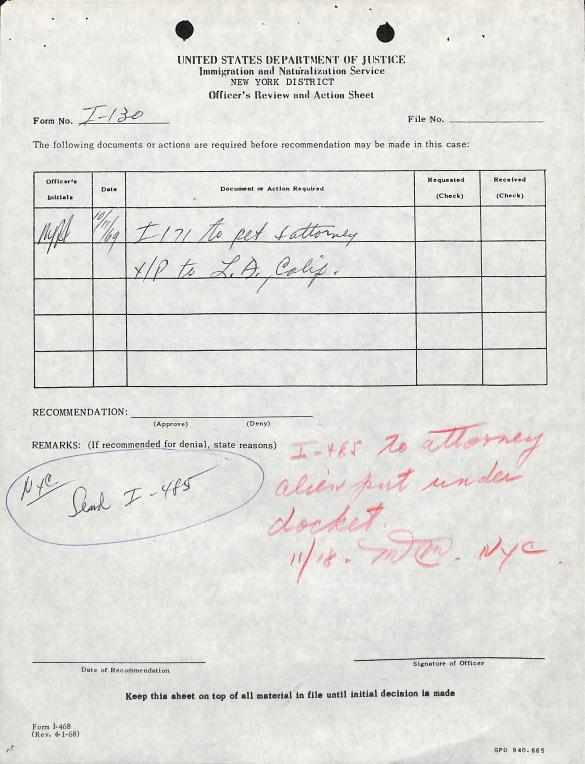 UNITED STATES DEPARTMENT OF JUSTICE
Immigration and Naturalization Service
NEW YORK DISTRICT
Officer's Review and Action Sheet
Form No. I-130
File No.
The following documents or actions are required before recommendation may be made in this case:
Officer's Initials
Date
Document or Action Required
Requested (Check)
Received (Check)
10/11/69
I 171 to pet & attorney
x/P to L.A, Calif.
RECOMMENDATION:
(Approve) (Deny)
REMARKS: (If recommended for denial, state reasons)
I-485 to attorney
alien put under
docket.
11/18. MM. NYC.
NYC
Send I-485
Date of Recommendation
Signature of Officer
Keep this sheet on top of all material in file until initial decision is made
Form I-468
(Rev. 4-1-68)
GPO 940-665